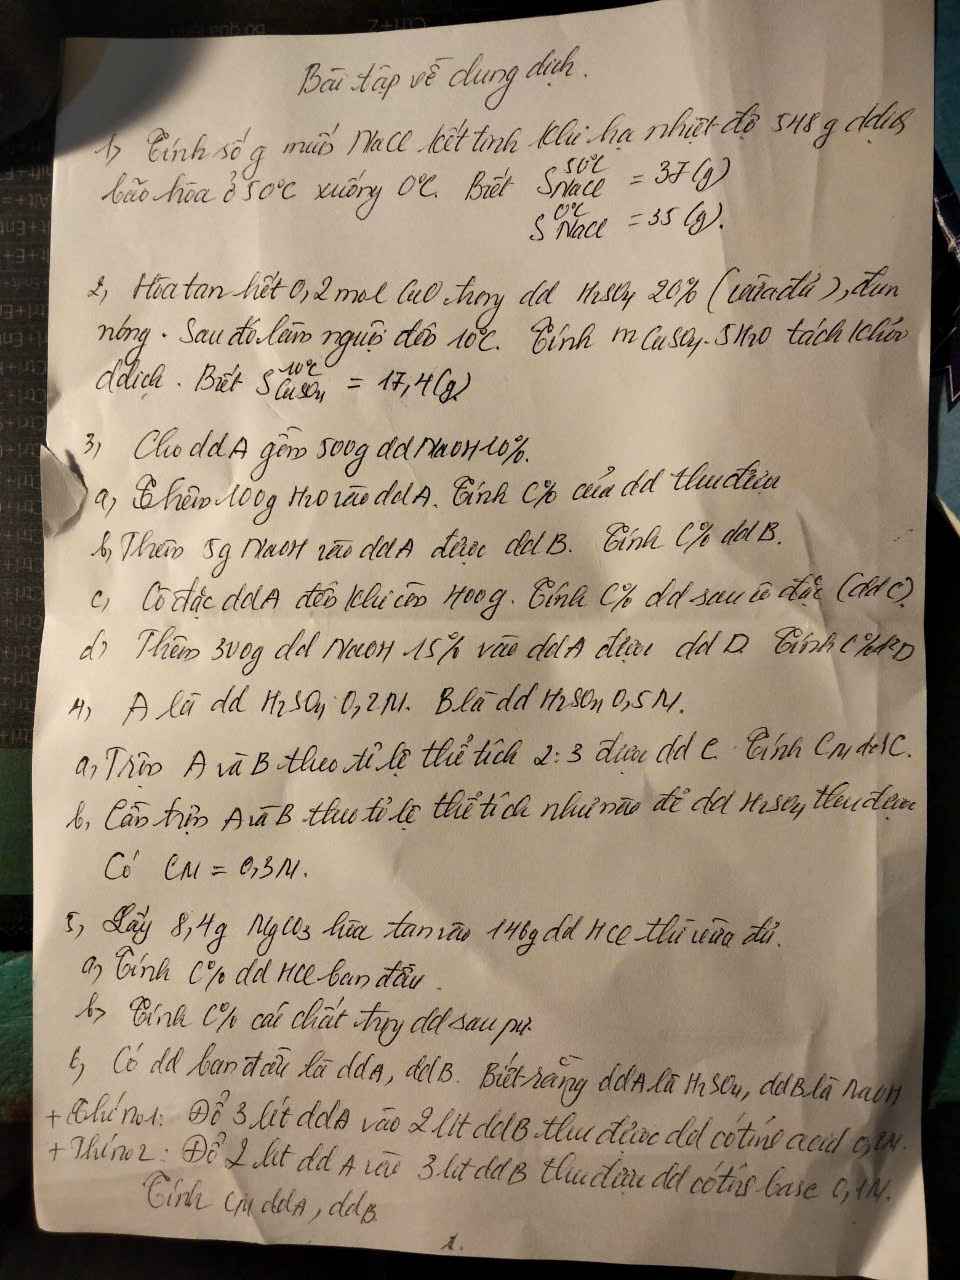 Bài tập về dung dịch.
1, Tính số g muối NaCl kết tinh khi hạ nhiệt độ 548 g ddịch
bão hòa ở 50°C xuống 0°C. Biết S 50°C NaCl = 37(g)
S 0°C NaCl = 35(g).
2, Hòa tan hết 0,2 mol CuO trong dd H2SO4 20% (vừa đủ), đun
nóng. Sau đó làm nguội đến 10°C. Tính m CuSO4.5H2O tách khỏi
ddịch. Biết S 10°C CuSO4 = 17,4(g)
3, Cho dd A gồm 500g dd NaOH 10%.
a, Thêm 100g H2O vào dd A. Tính C% của dd thu được
b, Thêm 5g NaOH vào dd A được dd B. Tính C% dd B.
c, Cô đặc dd A đến khi còn 400g. Tính C% dd sau cô đặc (dd C).
d, Thêm 300g dd NaOH 15% vào dd A được dd D. Tính C% dd D
4, A là dd H2SO4 0,2M. B là dd H2SO4 0,5M.
a, Trộn A và B theo tỉ lệ thể tích 2:3 được dd C. Tính CM dd C.
b, Cần trộn A và B theo tỉ lệ thể tích như nào để dd H2SO4 thu được
Có CM = 0,3M.
5, Lấy 8,4g MgCO3 hòa tan vào 146g dd HCl thì vừa đủ.
a, Tính C% dd HCl ban đầu.
b, Tính C% các chất trong dd sau pư.
6, Có dd ban đầu là dd A, dd B. Biết rằng dd A là H2SO4, dd B là NaOH
+ Thí no1: Đổ 3 lít dd A vào 2 lít dd B thu được dd có tính acid 0,2M.
+ Thí no2: Đổ 2 lít dd A vào 3 lít dd B thu được dd có tính base 0,1M.
Tính CM dd A, dd B
1.